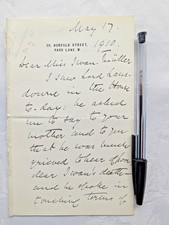 May 17.
30, NORFOLK STREET,
PARK LANE. W
1910.
Dear Miss Ivan-Müller
I saw Lord Lans-
downe in the House
to-day: he asked
me to say to your
mother and to you
that he was much
grieved to hear of poor
dear Ivan's death
and he spoke in
touching terms of